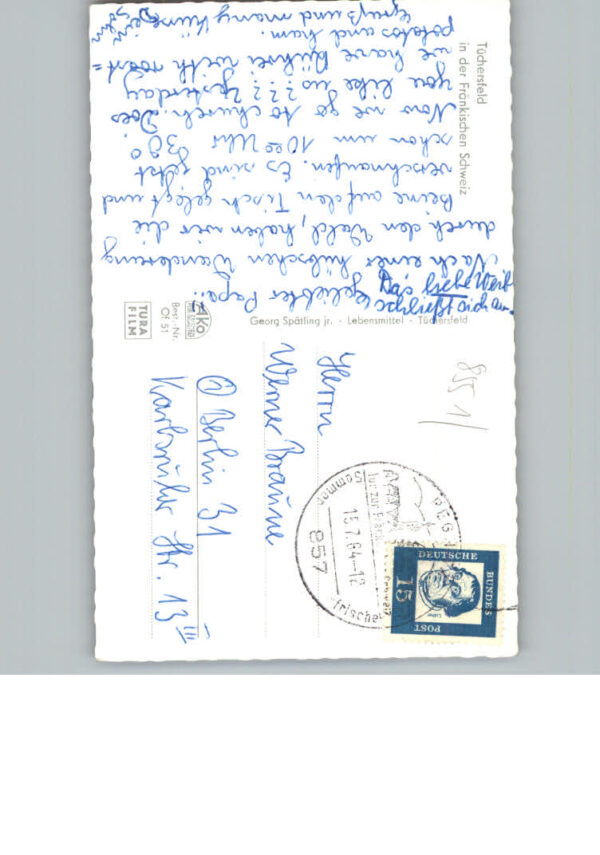 Tüchersfeld
in der Fränkischen Schweiz
geliebter Papa!
Nach einer hübschen Wanderung
durch den Wald, haben wir die
Beine auf den Tisch gelegt und
verschnaufen. Es sind jetzt
schon um 10 00 Uhr 30°.
Now we go to church. Does
you like us ??? Yesterday
we have Rührei with roast=
potatos and ham.
Gruß und many Küsse
Das
schließt sich an.
AKO
Best.-Nr.
Of 51
TURA
FILM
Georg Spätling jr. - Lebensmittel - Tüchersfeld
8551
Herrn
Werner Braune
1 Berlin 31
Karlsruher Str. 13 III
857
15.7.64-12
Sommer
frische
DEUTSCHE
BUNDES
POST
15
Luther